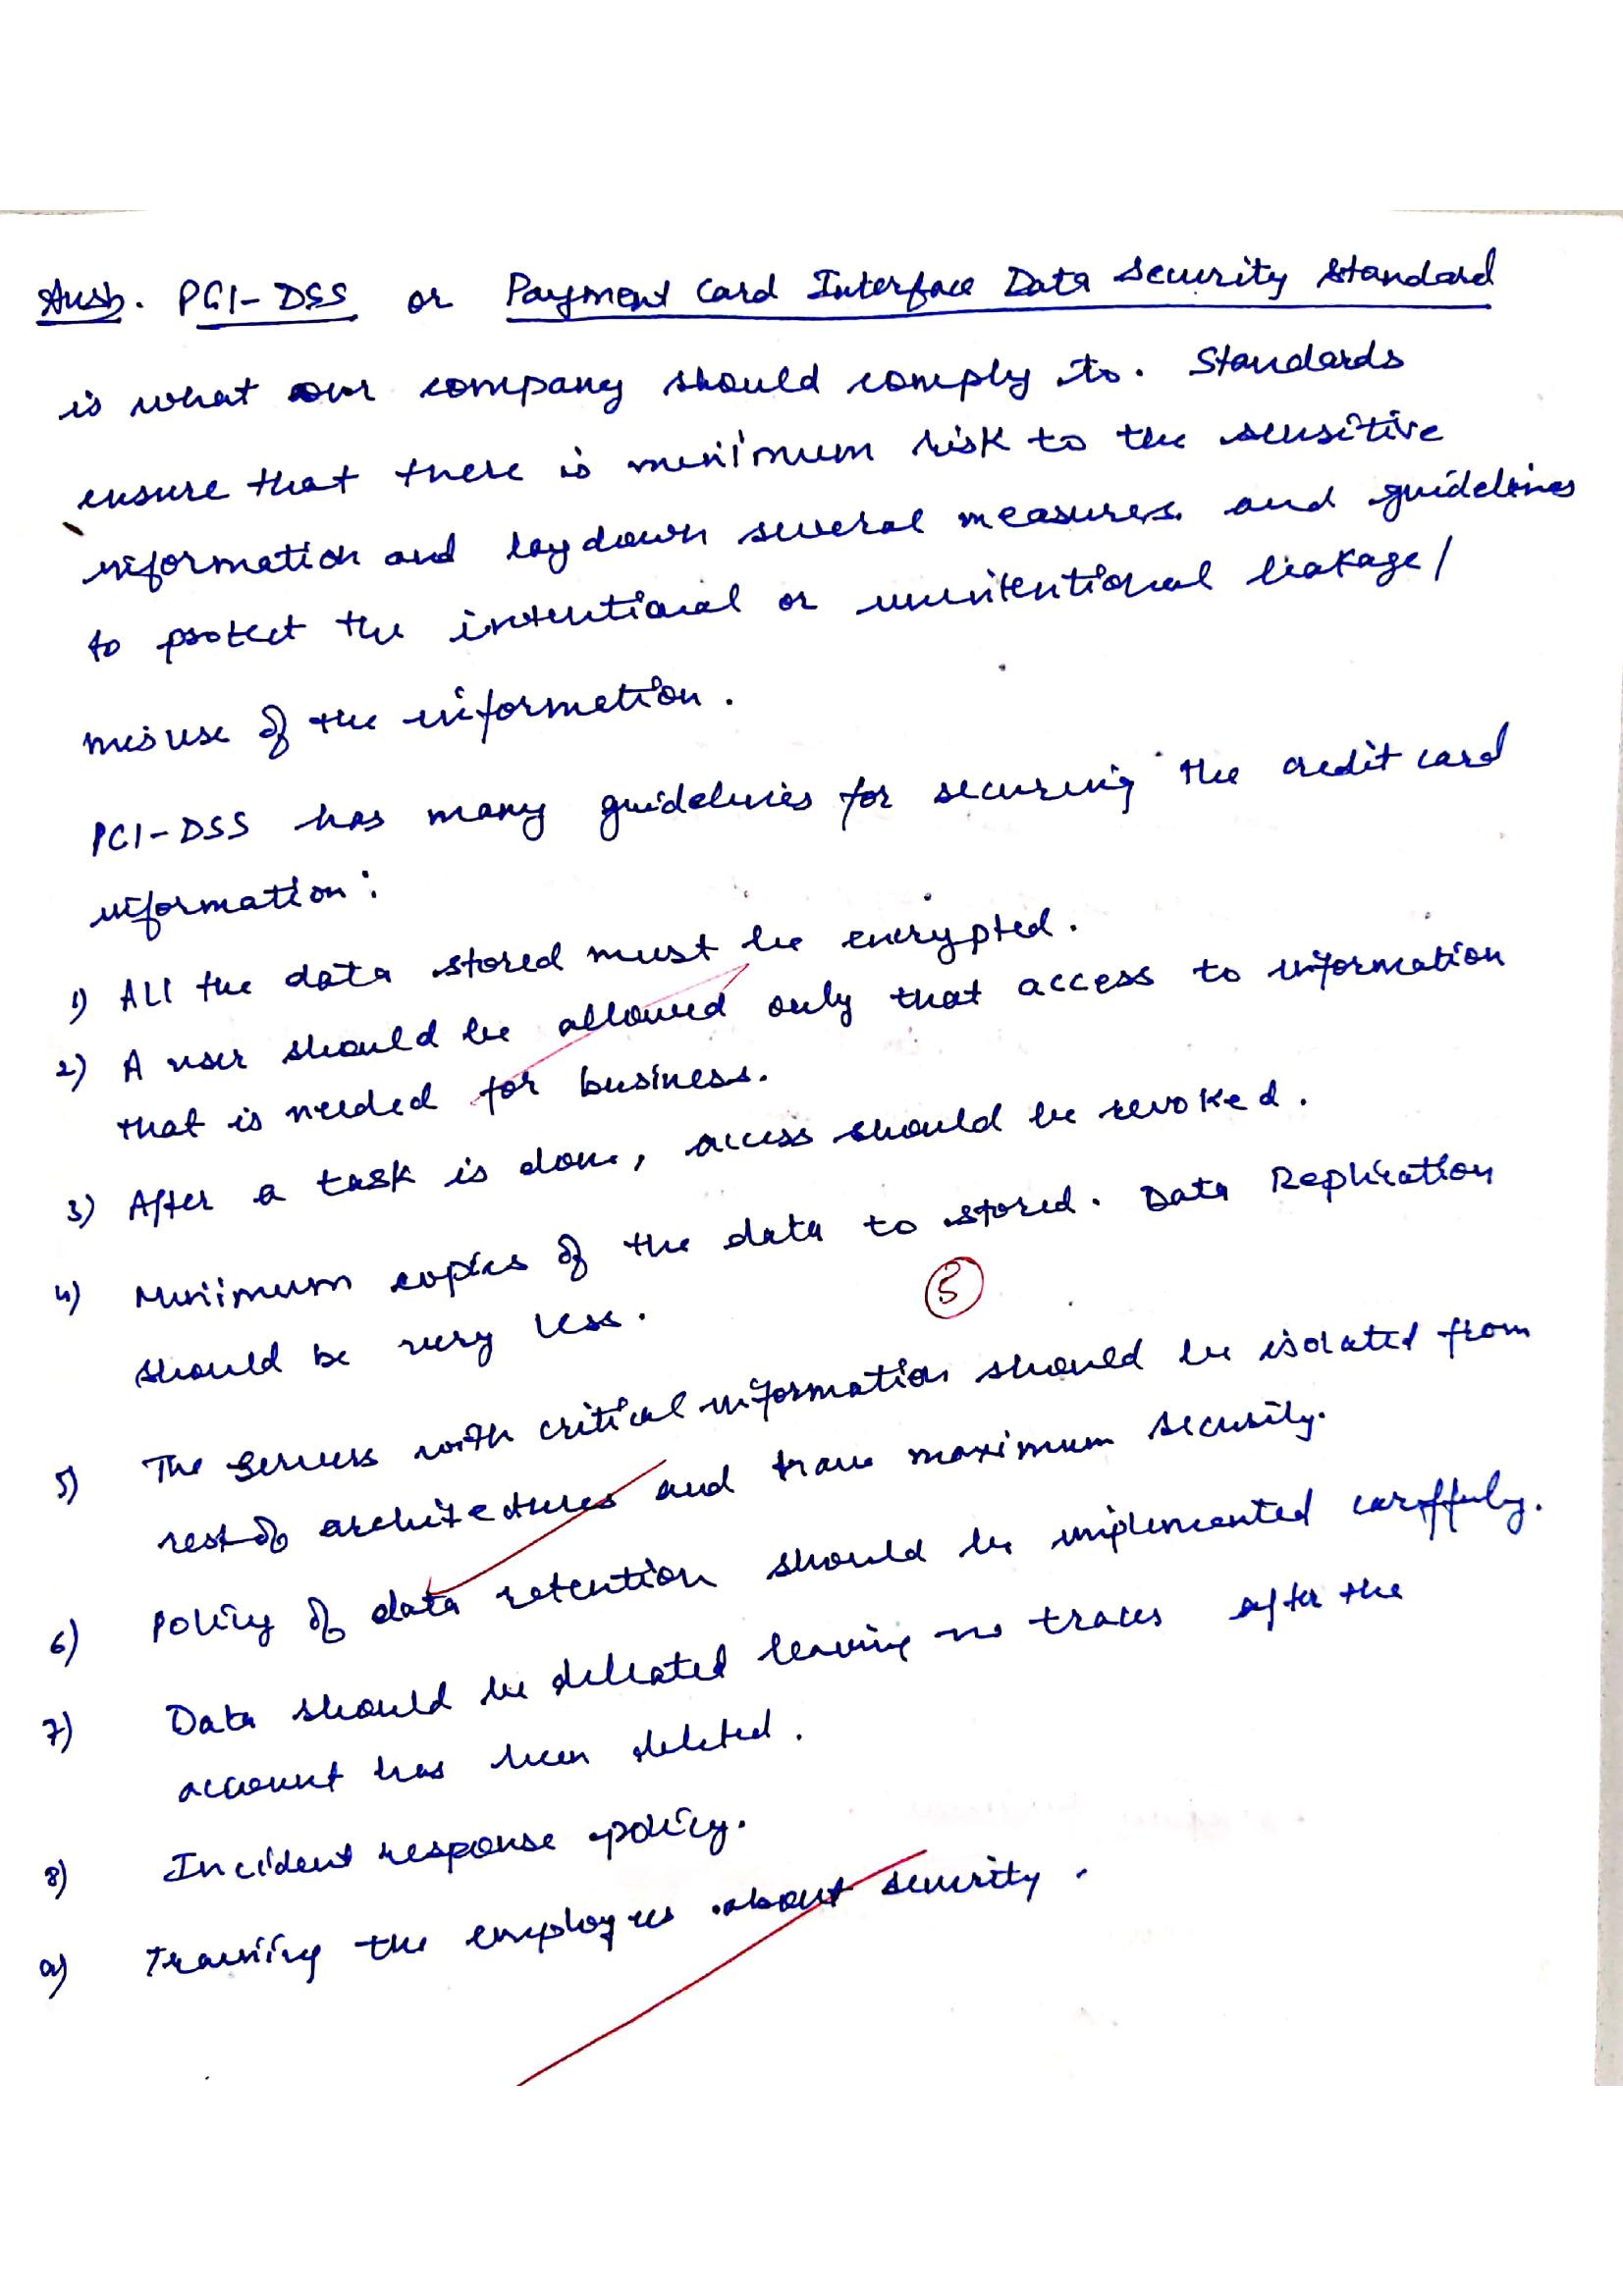 Ans5. PCI-DSS or Payment Card Interface Data Security Standard
is what our company should comply to. Standards
ensure that there is minimum risk to the sensitive
information and lay down several measures and guidelines
to protect the intentional or unintentional leakage/
misuse of the information.
PCI-DSS has many guidelines for securing the credit card
information:
1) All the data stored must be encrypted.
2) A user should be allowed only that access to information
that is needed for business.
3) After a task is done, access should be revoked.
4) Minimum copies of the data to stored. Data Replication
should be very less.
5
5) The Servers with critical information should be isolated from
rest of architectures and have maximum security.
6) Policy of data retention should be implemented carffuly.
7) Data should be deleated leaving no traces after the
account has been deleted.
8) Incident response policy.
9) Training the employees about security.